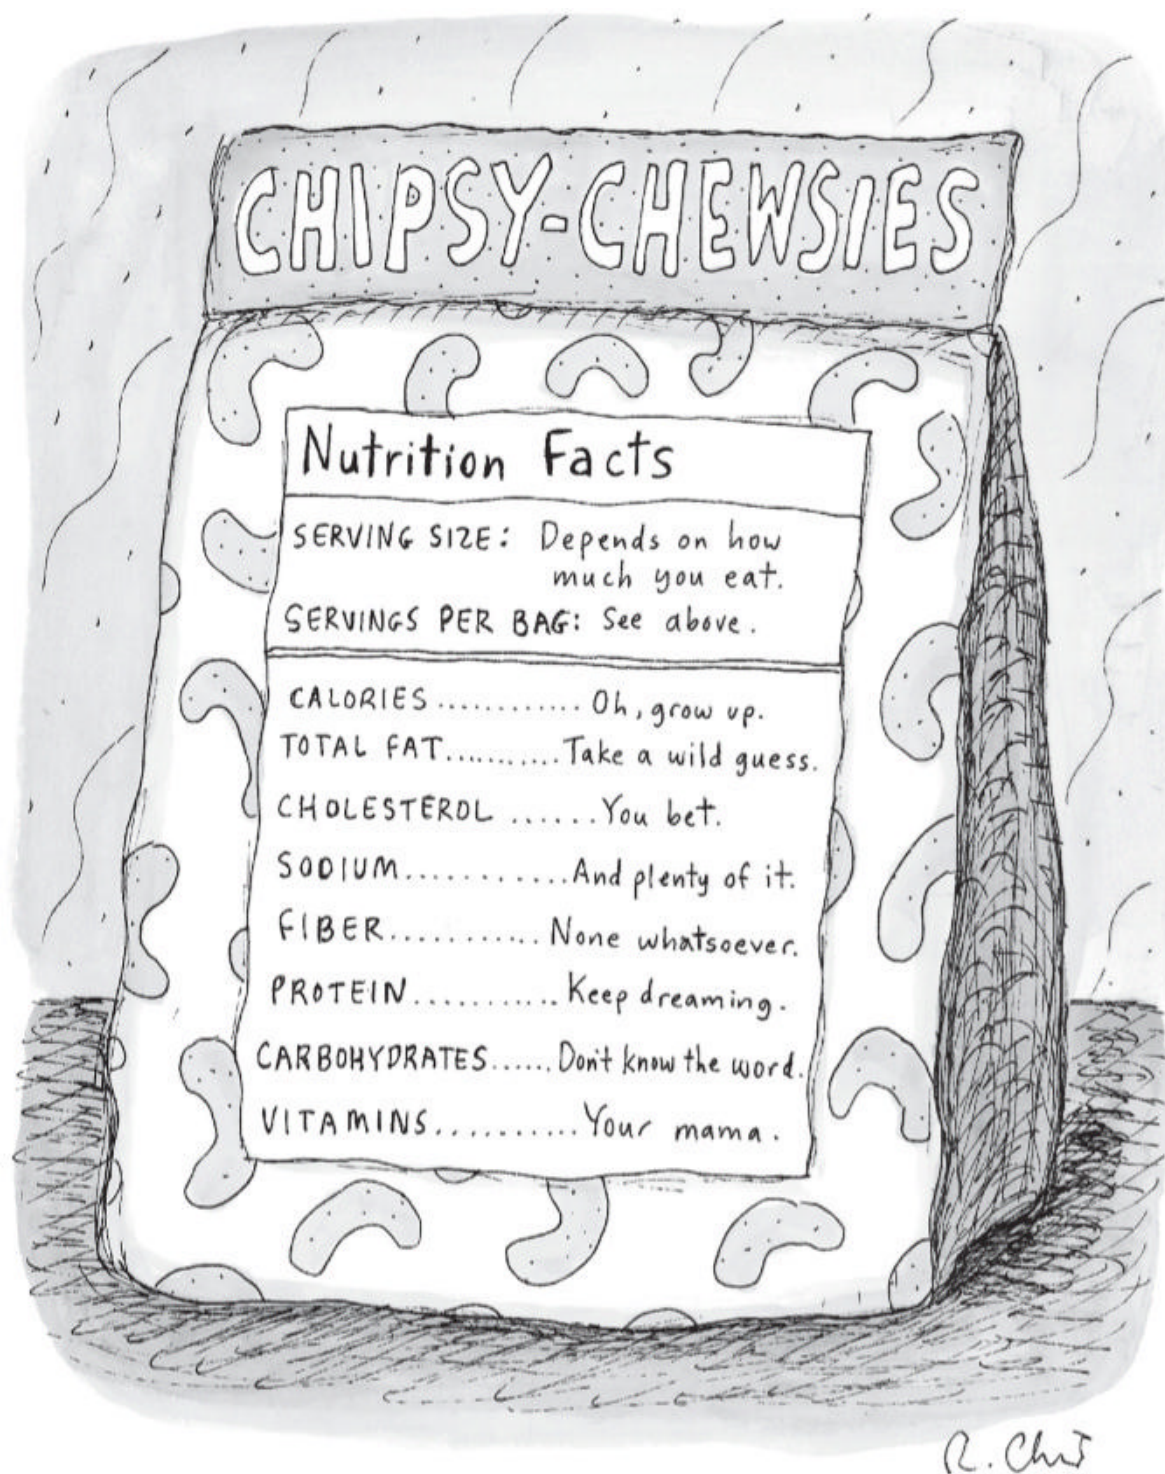 CHIPSY-CHEWSIES
Nutrition Facts
SERVING SIZE: Depends on how
much you eat.
SERVINGS PER BAG: See above.
CALORIES ............ Oh, grow up.
TOTAL FAT........... Take a wild guess.
CHOLESTEROL ...... You bet.
SODIUM........... And plenty of it.
FIBER........... None whatsoever.
PROTEIN........... Keep dreaming.
CARBOHYDRATES...... Don't know the word.
VITAMINS.......... Your mama.
R. Chst